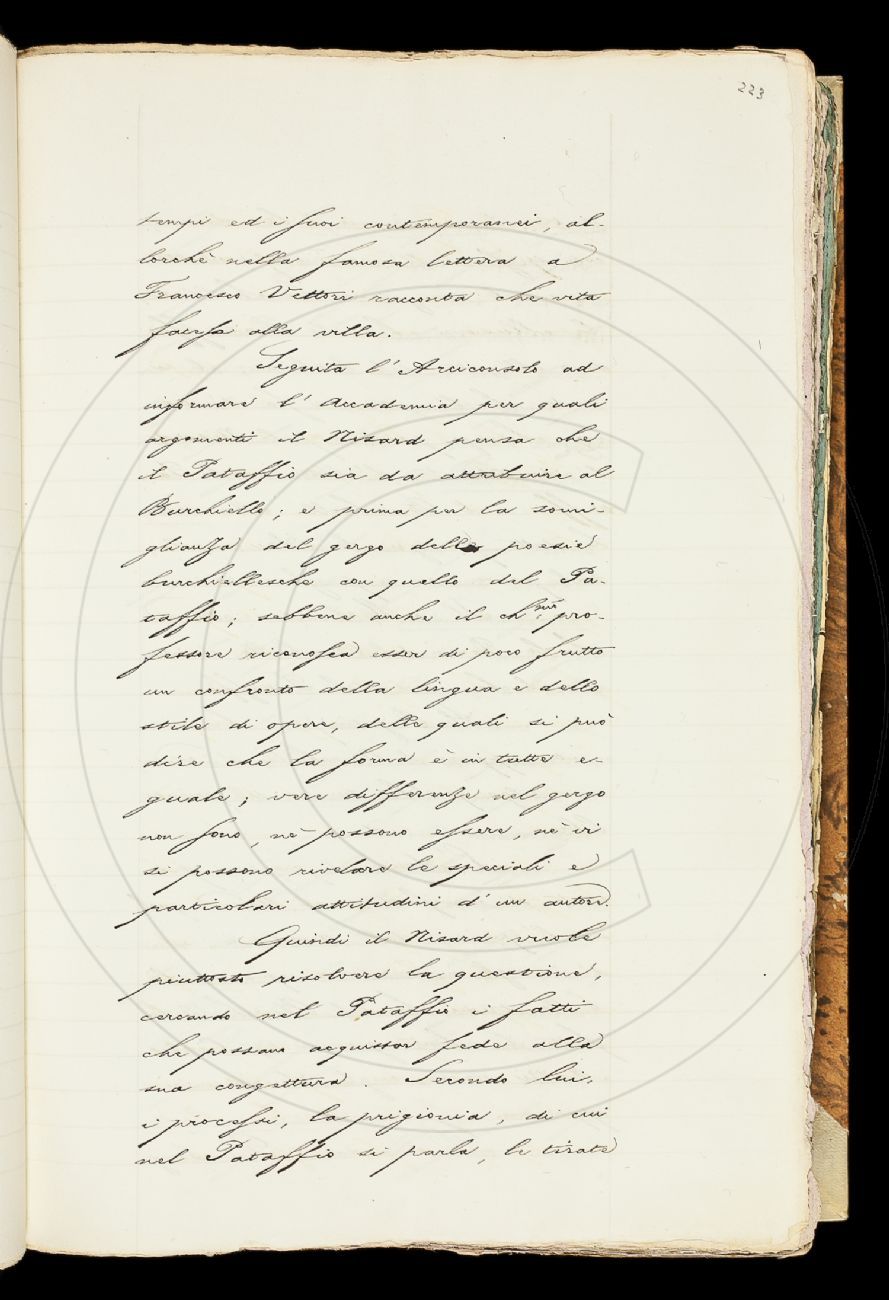 223
tempi ed i suoi contemporanei, al-
lorchè nella famosa lettera a
Francesco Vettori racconta che vita
facesse alla villa.
Seguita l' Arciconsolo ad
informare l' Accademia per quali
argomenti il Nisard pensa che
il Pataffio sia da attribuire al
Burchiello; e prima per la somi-
glianza del gergo delle poesie
burchiellesche con quello del Pa-
taffio; sebbene anche il ch.mo pro-
fessore riconosca esser di poco frutto
un confronto della lingua e dello
stile di opere, delle quali si può
dire che la forma è in tutte e-
guale; vere differenze nel gergo
non sono, nè possono essere, nè vi
si possono rivelare le speciali e
particolari attitudini d' un autore.
Quindi il Nisard vuole
piuttosto risolvere la questione,
cercando nel Pataffio i fatti
che possano acquistar fede alla
sua congettura. Secondo lui,
i processi, la prigionia, di cui
nel Pataffio si parla, le tirate